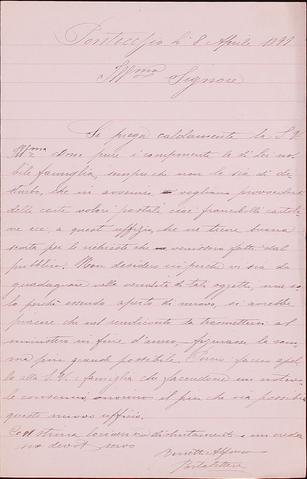 Pontecosi li 8 Aprile 1899
Ill.mo Signore
Si prega caldamente la S.V.
Ill.ma come pure i componenti la di Lei no-
bile famiglia, sempre che non le sia di di-
sturbo, che in avvenire vogliano provvedersi
delle carte valori postali cioè francobolli cartoli-
ne ecc. a quest'uffizio, che ne tiene buona
scorta per le richieste che venissero fatte dal
pubblico. Non desidero ciò perchè vi sia da
guadagnare alla vendita di tali oggetti, ma so-
lo perchè essendo aperto di nuovo, si avrebbe
piacere che nel rendiconto da trasmettersi al
ministero in fine d'anno, figurasse la som-
ma più grande possibile. Perciò faccio appel-
lo alla S.V. e famiglia che facendone un notevo-
le consumo onorino il più che sia possibile
questo nuovo ufficio.
Con stima la riverisco distintamente e mi creda
suo devot. servo
Alfonso
Portalettere